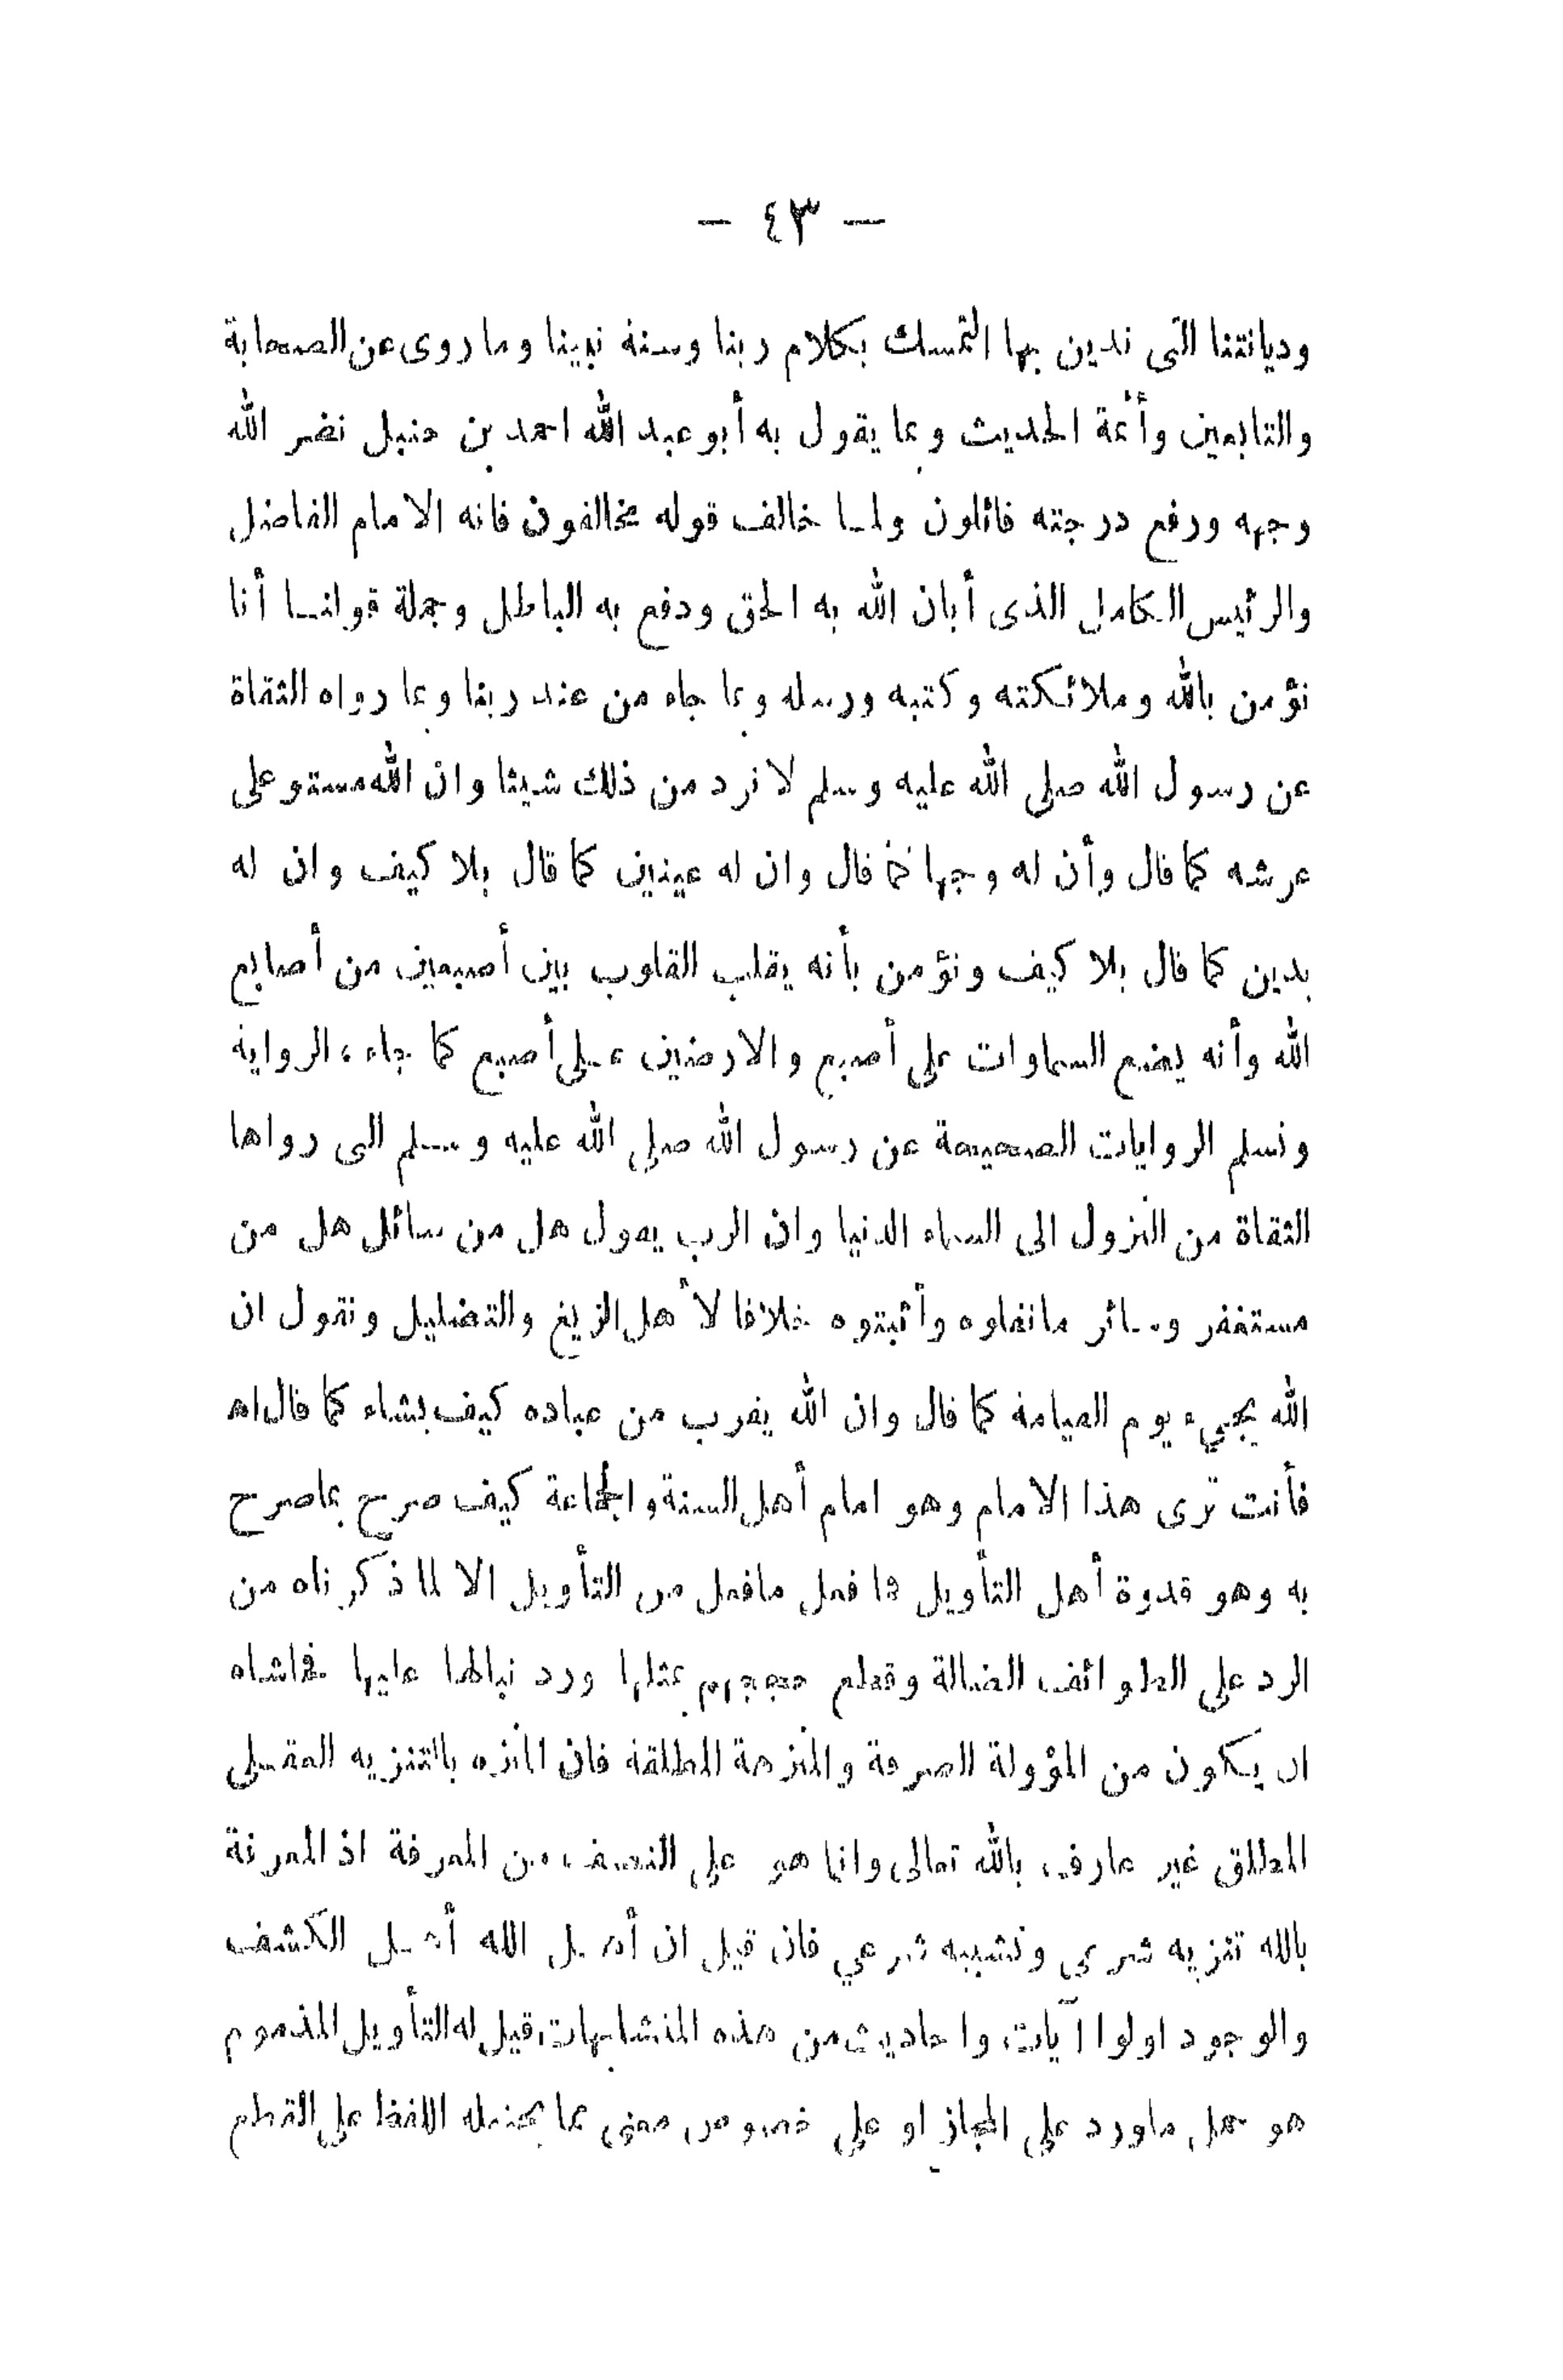 — ٤٣ —
وديانتنا التى ندين بها التمسك بكلام ربنا وسنة نبينا وما روى عن الصحابة
والتابعين وأئمة الحديث وبما يقول به أبو عبد الله احمد بن حنبل نضر الله
وجهه ورفع درجته قائلون ولما خالف قوله مخالفون فانه الامام الفاضل
والرئيس الكامل الذى أبان الله به الحق ودفع به الباطل وجملة قولنا أنا
نؤمن بالله وملائكته وكتبه ورسله وبما جاء من عند ربنا وبما رواه الثقاة
عن رسول الله صلى الله عليه وسلم لا نرد من ذلك شيئا وان الله مستو على
عرشه كما قال وأن له وجها كما قال وان له عينين كما قال بلا كيف وان له
يدين كما قال بلا كيف ونؤمن بأنه يقلب القلوب بين أصبعين من أصابع
الله وأنه يضع السماوات على أصبع والارضين على أصبع كما جاء، الرواية
ونسلم الروايات الصحيحة عن رسول الله صلى الله عليه وسلم التى رواها
الثقاة من النزول الى السماء الدنيا وان الرب يقول هل من سائل هل من
مستغفر وسائر مانقلوه وأثبتوه خلافا لأهل الزيغ والتضليل ونقول ان
الله يجيء يوم القيامة كما قال وان الله يقرب من عباده كيف يشاء كما قال اه
فأنت ترى هذا الامام وهو امام أهل السنة والجماعة كيف صرح بماصرح
به وهو قدوة أهل التأويل فما فعل مافعل من التأويل الا لما ذكرناه من
الرد على الطوائف الضالة وقطع حججهم بمثلها ورد نبالها عليها فحاشاه
ان يكون من المؤولة الصرفة والمنزهة المطلقة فان المنزه بالتنزيه العقلى
المطلق غير عارف بالله تعالى وانما هو على النصف من المعرفة اذ المعرفة
بالله تنزيه شرعي وتشبيه شرعي فان قيل ان أهل الله أهل الكشف
والوجود اولوا آيات واحاديث من هذه المتشابهات قيل له التأويل المذموم
هو حمل ماورد على المجاز او على خصوص معنى مما يحتمله اللفظ على القطع